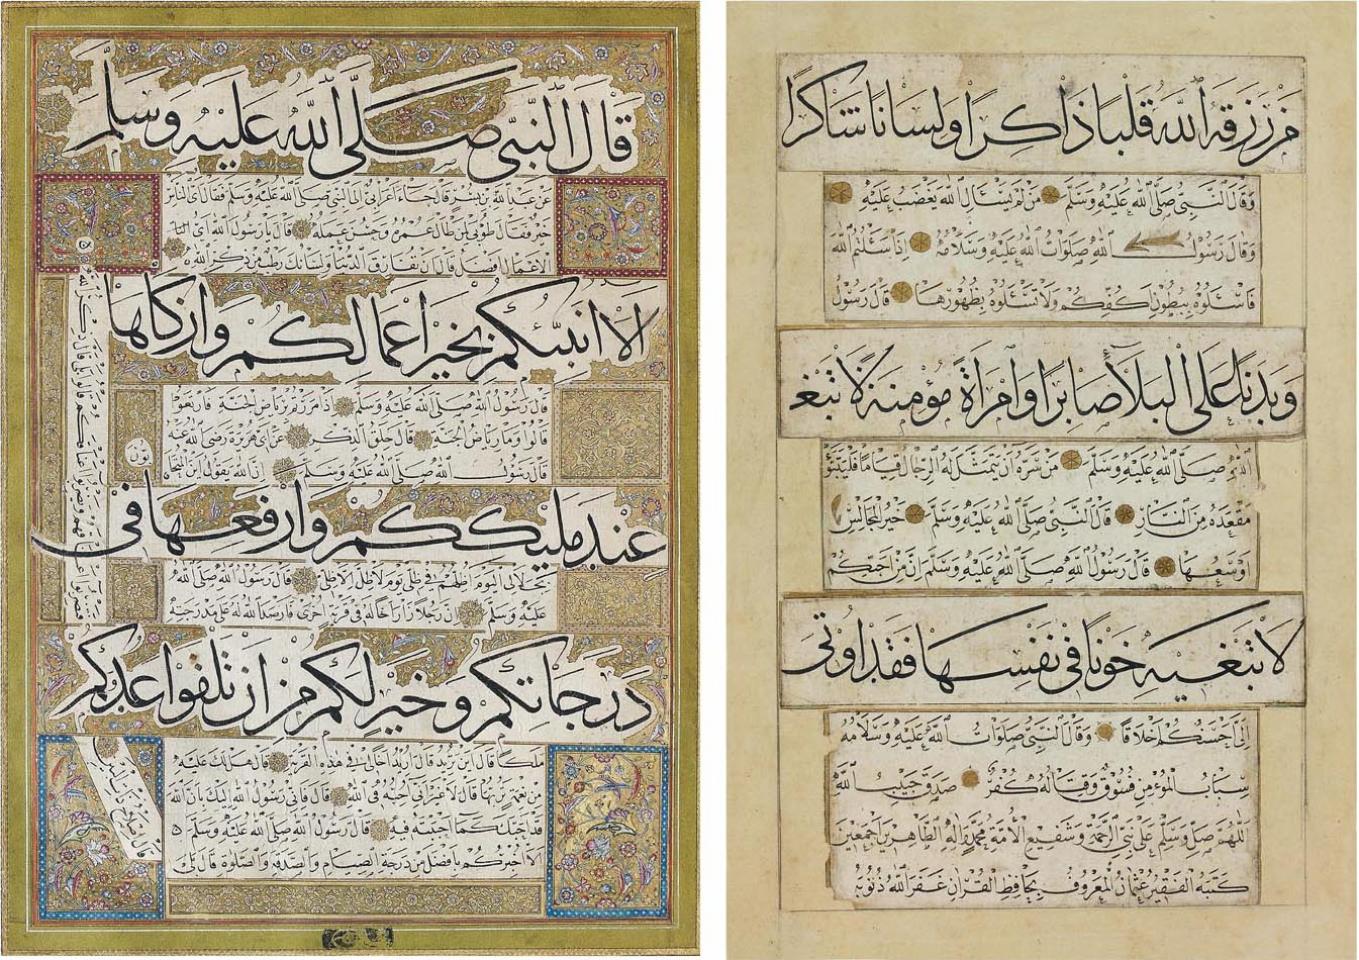 قال النبي صلى الله عليه وسلم
عن عبد الله بن بسر قال جاء اعرابي الى النبي صلى الله عليه وسلم فقال اي الناس
خير فقال طوبى لمن طال عمره وحسن عمله قال يا رسول الله اي
الاعمال افضل قال ان تفارق الدنيا ولسانك رطب من ذكر الله
الا انبئكم بخير اعمالكم وازكاها
قال رسول الله صلى الله عليه وسلم اذا مررتم برياض الجنة فارتعوا
قالوا وما رياض الجنة قال حلق الذكر عن ابي هريرة رضي الله عنه
قال رسول الله صلى الله عليه وسلم ان الله يقول اين
عند مليككم وارفعها في
بجلالي اليوم اظلهم في ظلي يوم لا ظل الا ظلي قال رسول الله صلى الله
عليه وسلم ان رجلا زار اخا له في قرية اخرى فارصد الله له على مدرجته
درجاتكم وخير لكم من ان تلقوا عدوكم
ملكا قال اين تريد قال اريد اخا لي في هذه القرية قال هل لك عليه
من نعمة تربها قال لا غير اني احببته في الله قال فاني رسول الله اليك بان الله
قد احبك كما احببته فيه قال رسول الله صلى الله عليه وسلم
الا اخبركم بافضل من درجة الصيام والصدقة والصلوة قال بلى
من رزقه الله قلبا ذاكرا ولسانا شاكرا
وقال النبي صلى الله عليه وسلم من لم يسال الله يغضب عليه
وقال رسول الله صلوات الله عليه وسلامه اذا سئلتم الله
فاسئلوه ببطون اكفكم ولا تسئلوه بظهورها قال رسول
وبدنا على البلأ صابرا وامراة مؤمنة لا تبغ
الله صلى الله عليه وسلم من سره ان يتمثل له الرجال قياما فليتبوا
مقعده من النار قال النبي صلى الله عليه وسلم خير المجالس
اوسعها قال رسول الله صلى الله عليه وسلم ان من احبكم
لا تبغيه خونا في نفسها فقد اوتي
الى احسنكم اخلاقا وقال النبي صلوات الله عليه وسلامه
سباب المؤمن فسوق وقتاله كفر صدق حبيب الله
اللهم صل وسلم على نبي الرحمة وشفيع الامة محمد واله الطاهرين اجمعين
كتبه الفقير عثمان المعروف بحافظ القران غفر الله ذنوبه